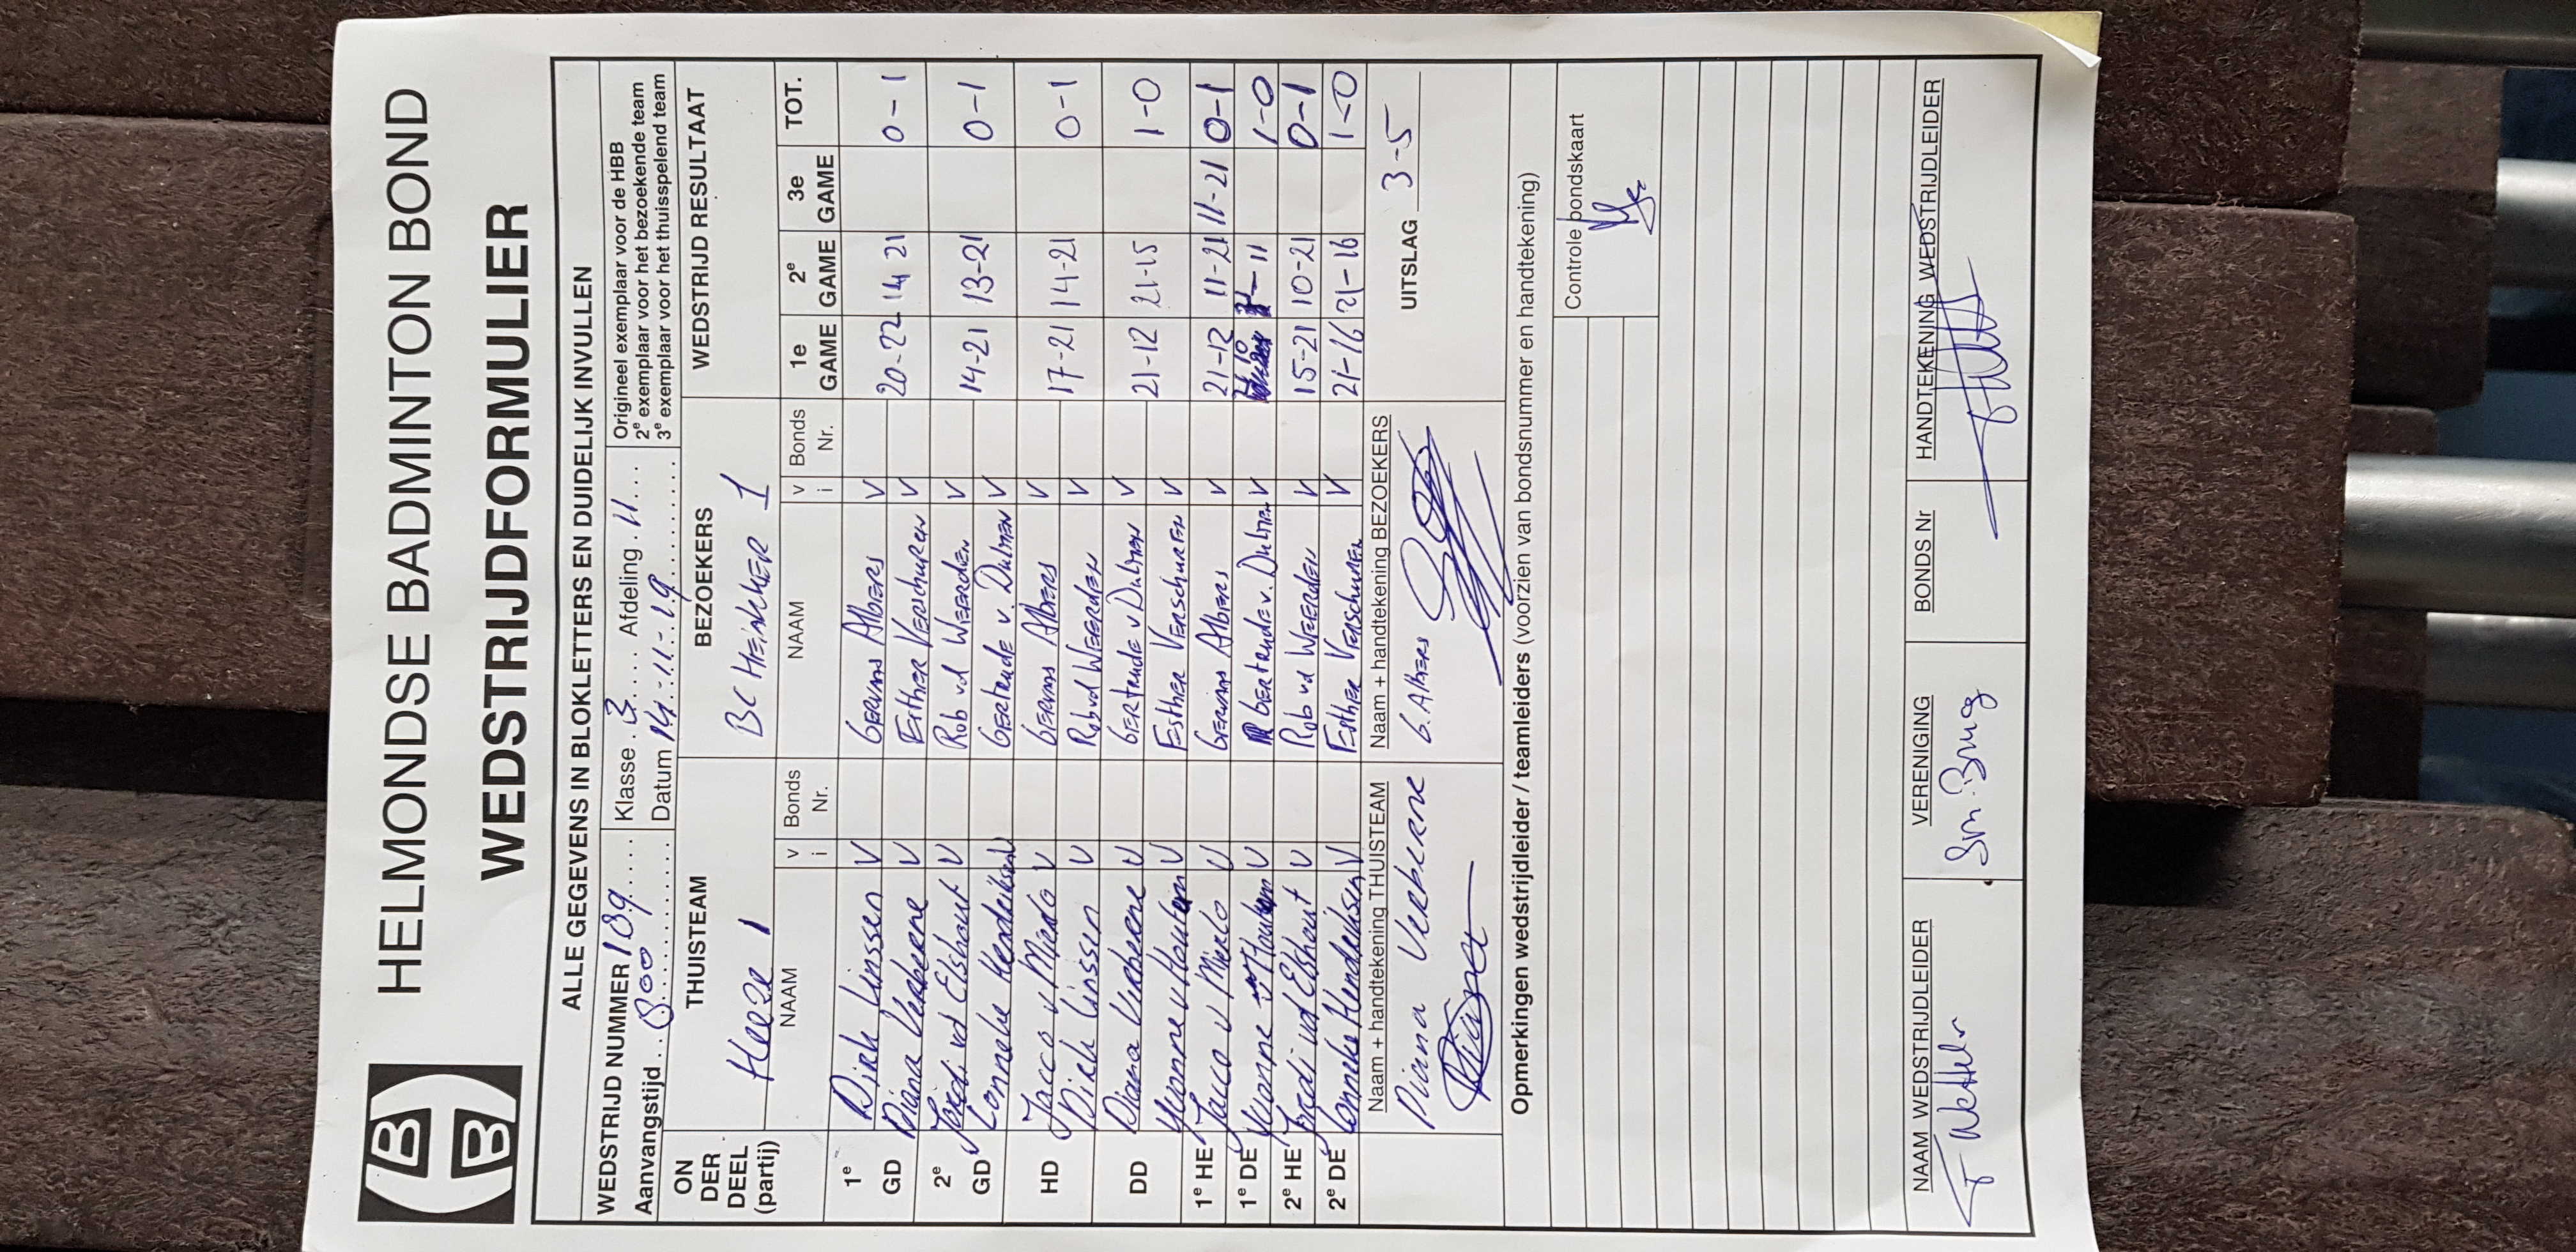 HELMONDSE BADMINTON BOND
WEDSTRIJDFORMULIER
ALLE GEGEVENS IN BLOKLETTERS EN DUIDELIJK INVULLEN
WEDSTRIJD NUMMER 139 Klasse . 3 . . . . Afdeling . 11 . . . Origineel exemplaar voor de HBB
Aanvangstijd . . 8 00 Datum 14 - 11 - 19 2e exemplaar voor het bezoekende team
3e exemplaar voor het thuisspelend team
ON DER DEEL (partij) THUISTEAM BEZOEKERS WEDSTRIJD RESULTAAT
Heeze 1 BC HEINCKER 1
NAAM v i Bonds Nr. NAAM v i Bonds Nr. 1e GAME 2e GAME 3e GAME TOT.
1e GD Dirk Linssen V GERVAS AlBERS V 20-22 14 21 0-1
Diana Verberne V EstHER VERSCHUREN V
2e GD Jordi vd Elshout V Rob vd WEERDEN V 14-21 13-21 0-1
Lonneke Hendriksen V GERtrude v. DulMEN V
HD Jacco v Mierlo V GERVAS AlBERS V 17-21 14-21 0-1
Dirk Linssen V Rob vd WEERDEN V
DD Diana Verberne V GERtrude v DulMEN V 21-12 21-15 1-0
Yvonne v Houtem V EstHER VERSCHUREN V
1e HE Jacco v Mierlo V GERVAS AlBERS V 21-12 11-21 11-21 0-1
1e DE Yvonne v Houtem V GERtrude v. DulMEN V -11 1-0
2e HE Jordi vd Elshout V Rob vd WEERDEN V 15-21 10-21 0-1
2e DE Lonneke Hendriksen V EstHER VERSCHUREN V 21-16 21-16 1-0
Naam + handtekening THUISTEAM Naam + handtekening BEZOEKERS UITSLAG 3-5
Diana Verberne G. AlBERS
Opmerkingen wedstrijdleider / teamleiders (voorzien van bondsnummer en handtekening)
Controle bondskaart
NAAM WEDSTRIJDLEIDER VERENIGING BONDS Nr HANDTEKENING WEDSTRIJDLEIDER